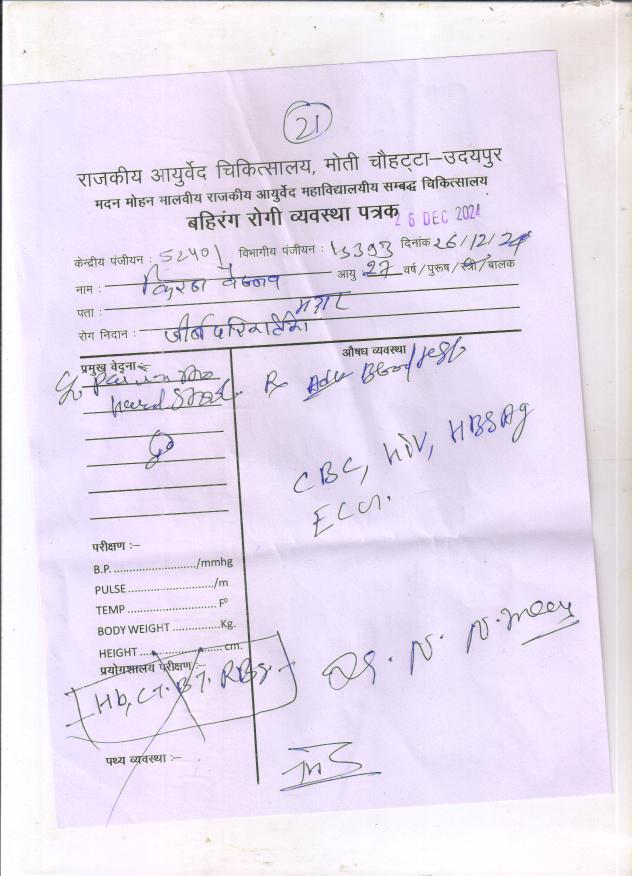 21
राजकीय आयुर्वेद चिकित्सालय, मोती चौहट्टा–उदयपुर
मदन मोहन मालवीय राजकीय आयुर्वेद महाविद्यालयीय सम्बद्ध चिकित्सालय
बहिरंग रोगी व्यवस्था पत्रक
26 DEC 2024
केन्द्रीय पंजीयन : 52401 विभागीय पंजीयन : दिनांक 26/12/24
नाम : किरण वैष्णव आयु 27 वर्ष / पुरूष / स्त्री / बालक
पता :
रोग निदान : जीर्ण
प्रमुख वेदना :– औषध व्यवस्था
Hard Stool. R Adv Blood test
CBC, HIV, HBSAg
ECG.
परीक्षण :–
B.P. ......................../mmhg
PULSE ........................../m
TEMP .......................... Fº
BODY WEIGHT ..............Kg.
HEIGHT ........................ cm.
प्रयोगशालय परीक्षण :–
Hb, CT. BT. RBS
Dr. N. N.
पथ्य व्यवस्था :–